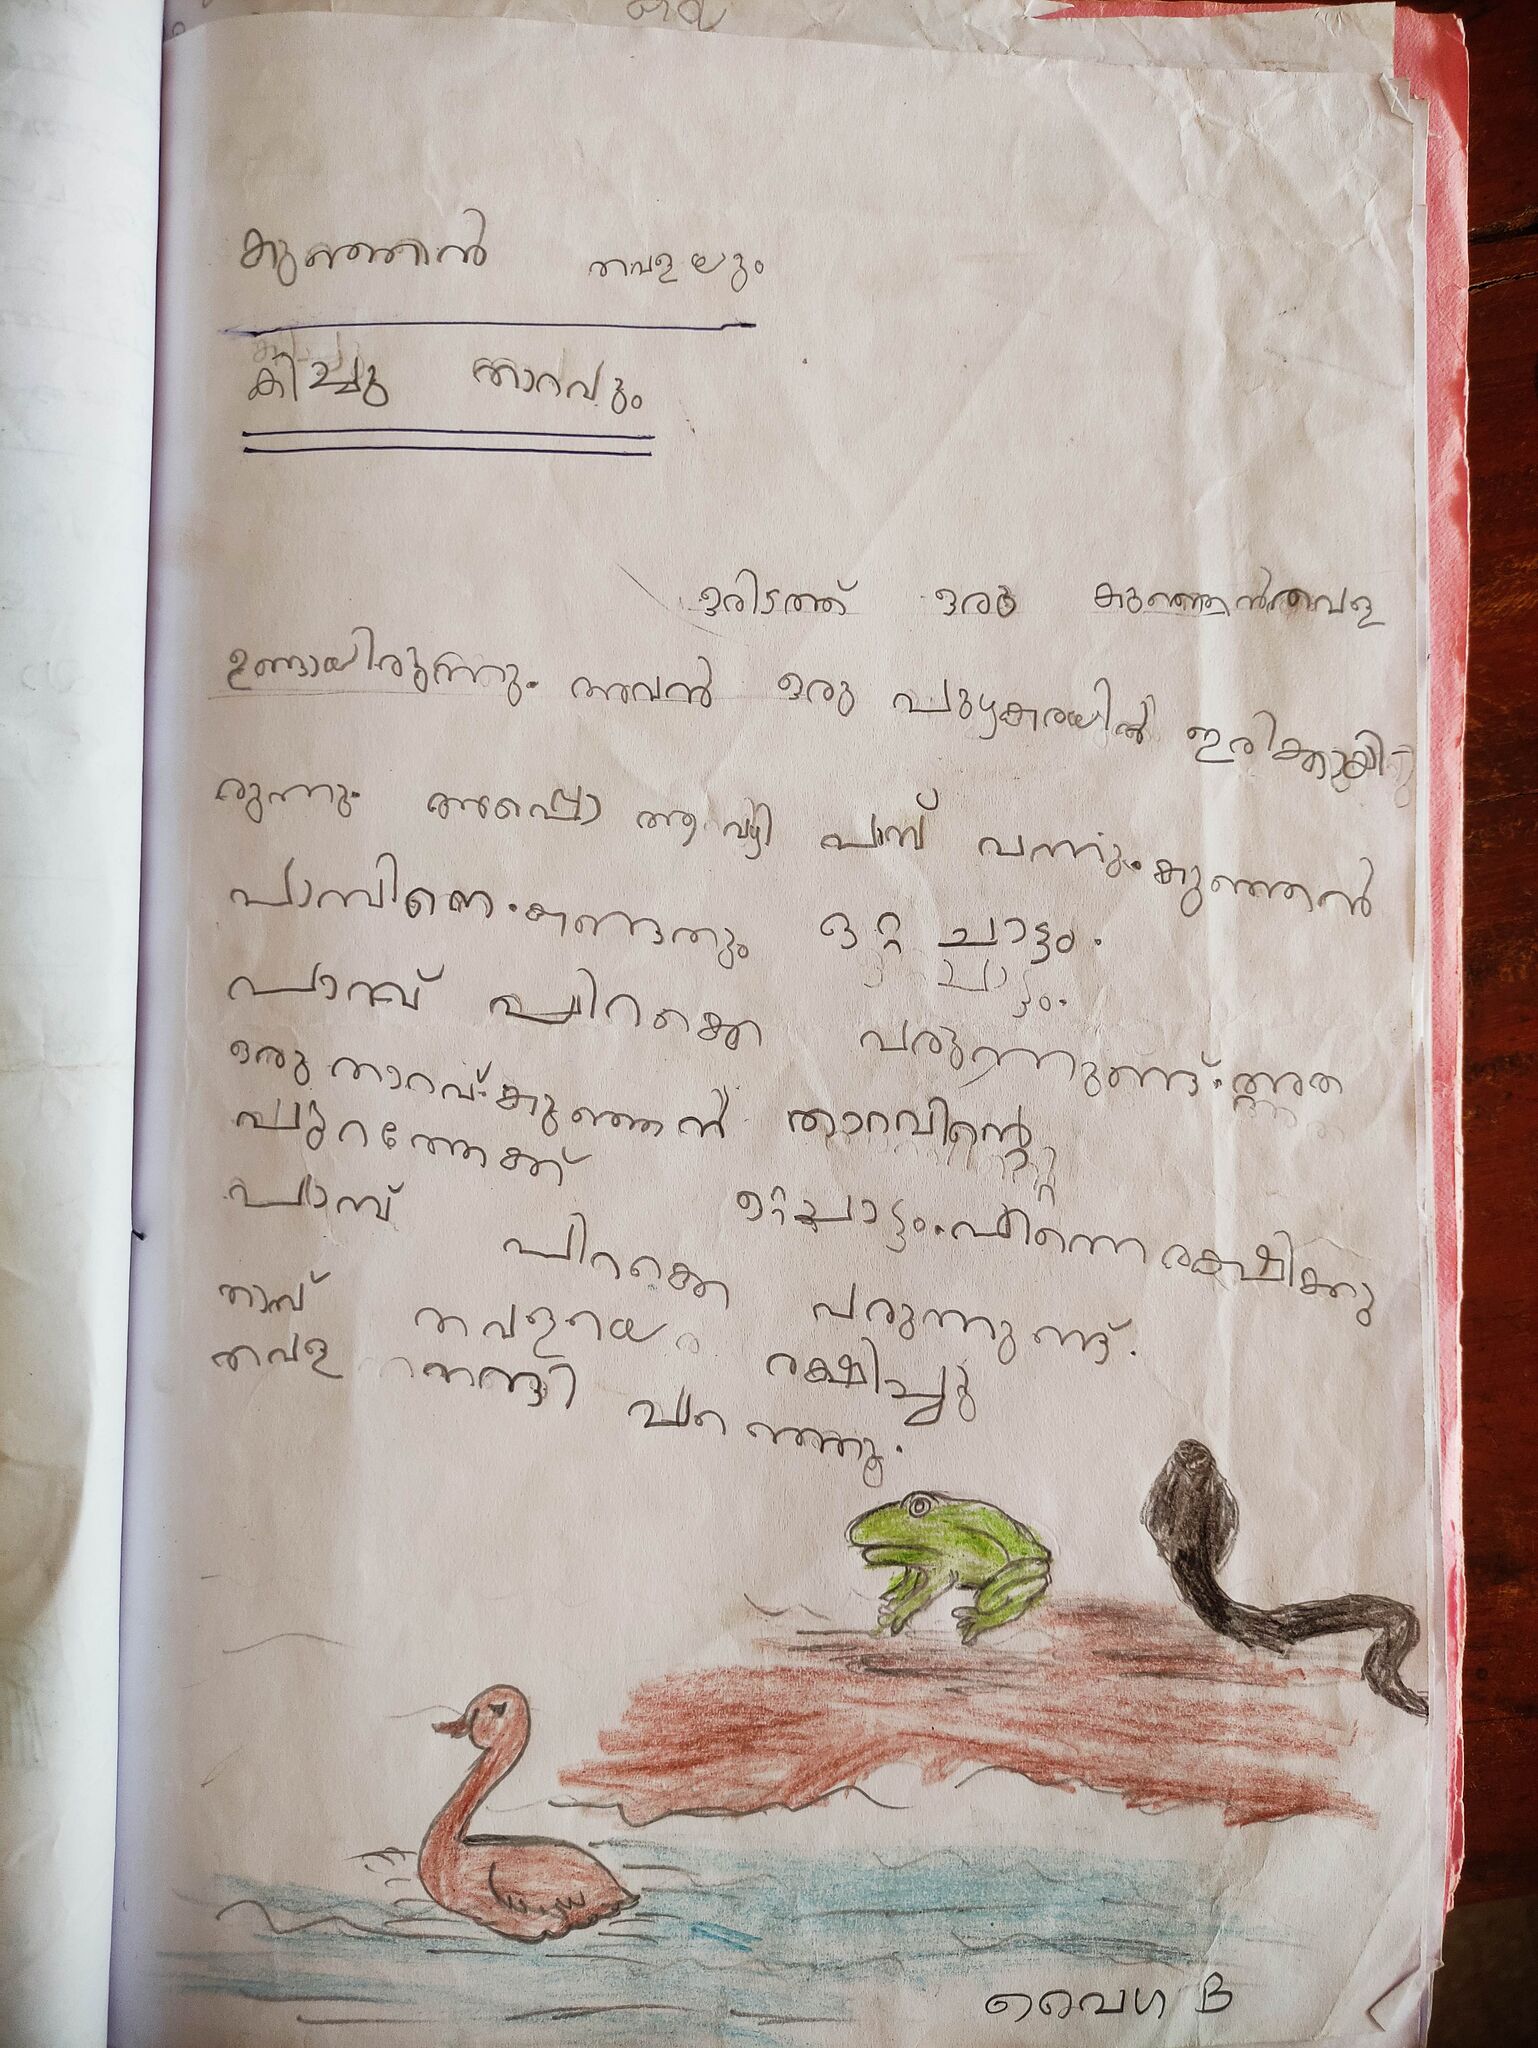 കുഞ്ഞൻ തവളയും
കിച്ചു താറവും
ഒരിടത്ത് ഒരു കുഞ്ഞൻതവള
ഉണ്ടായിരുന്നു. അവൻ ഒരു പുഴകരയിൽ ഇരിക്കുയി
രുന്നു. അപ്പൊ ആ വഴി പാമ്പ് വന്നു. കുഞ്ഞൻ
പാമ്പിനെ കണ്ടതും ഒറ്റ ചാട്ടം.
പാമ്പ് പിറക്കെ വരുന്നുണ്ട്. അതാ
ഒരു താറവ്. കുഞ്ഞൻ താറവിൻ്റെ
പുറത്തേക്ക്
ഒറ്റചാട്ടം. എന്നെ രക്ഷിക്കു
പാമ്പ് പിറക്കെ വരുന്നുണ്ട്.
താറവ് തവളയെ രക്ഷിച്ചു
തവള നന്ദി പറഞ്ഞു.
വൈഗ B